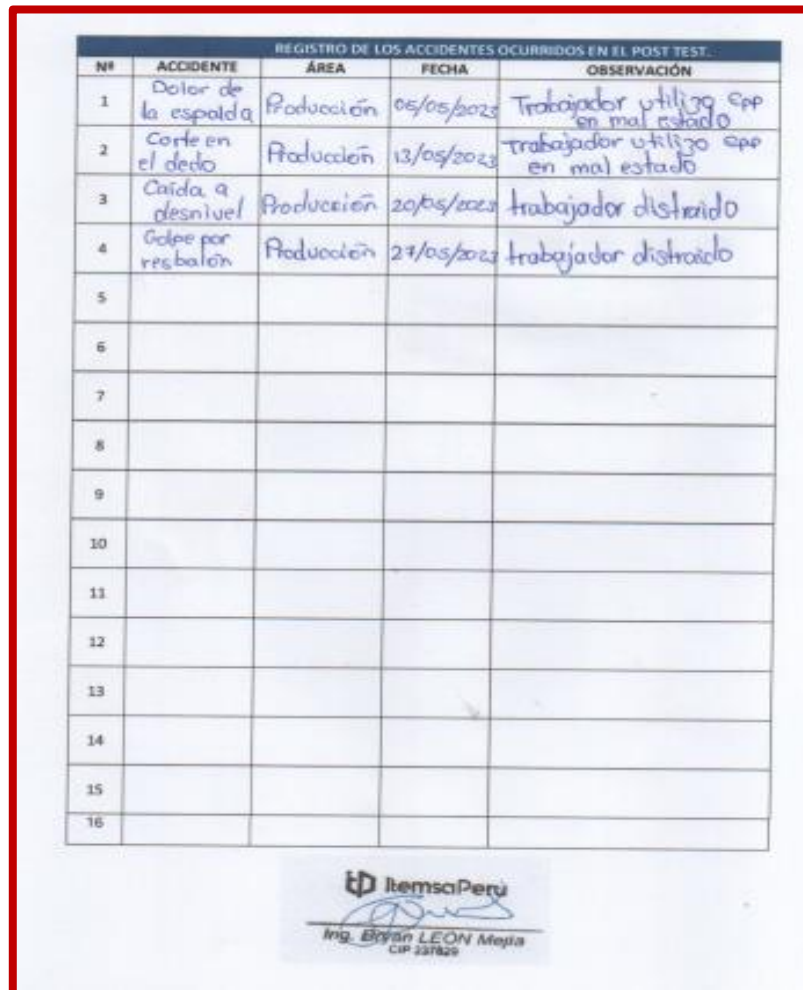 REGISTRO DE LOS ACCIDENTES OCURRIDOS EN EL POST TEST.
Nº ACCIDENTE ÁREA FECHA OBSERVACIÓN
1 Dolor de la espalda Producción 05/05/2023 Trabajador utilizo epp en mal estado
2 Corte en el dedo Producción 13/05/2023 trabajador utilizo epp en mal estado
3 Caída a desnivel Producción 20/05/2023 trabajador distraido
4 Golpe por resbalón Producción 27/05/2023 trabajador distraido
5
6
7
8
9
10
11
12
13
14
15
16
ItemsaPerú
Ing. Bryan LEON Mejia
CIP 337829